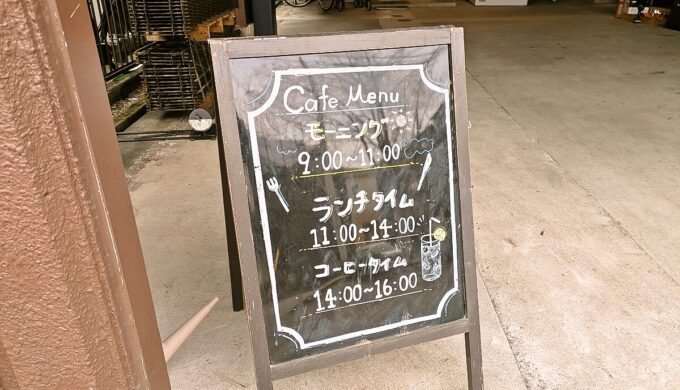 Cafe Menu
モーニング
9:00~11:00
ランチタイム
11:00~14:00
コーヒータイム
14:00~16:00